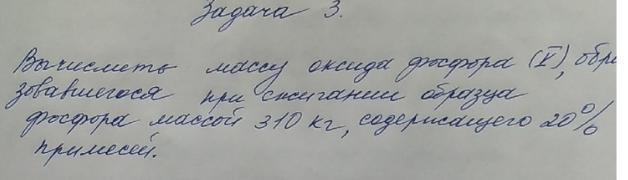 Задача 3.
Вычислить массу оксида фосфора (V), обра
зовавшегося при сжигании образца
фосфора массой 310 кг, содержащего 20%
примесей.